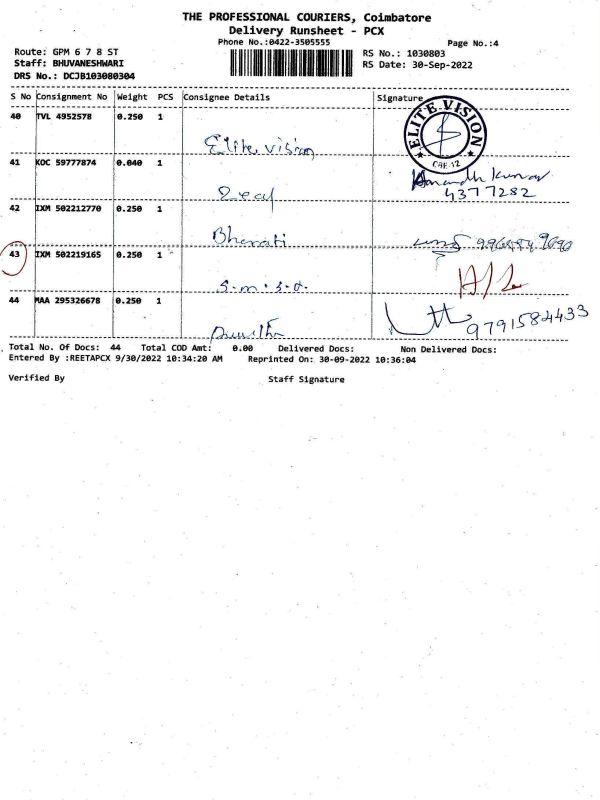 THE PROFESSIONAL COURIERS, Coimbatore
Delivery Runsheet - PCX
Phone No.:0422-3505555 Page No.:4
Route: GPM 6 7 8 ST RS No.: 1030803
Staff: BHUVANESHWARI RS Date: 30-Sep-2022
DRS No.: DCJB103080304
S No Consignment No Weight PCS Consignee Details Signature
40 TVL 4952578 0.250 1
Elite vision
ELITE VISION
CBE-12
41 KOC 59777874 0.040 1
4377282
42 IXM 502212770 0.250 1
Bharati
43 IXM 502219165 0.250 1
S.m.s.a.
44 MAA 295326678 0.250 1
9791584433
Total No. Of Docs: 44 Total COD Amt: 0.00 Delivered Docs: Non Delivered Docs:
Entered By :REETAPCX 9/30/2022 10:34:20 AM Reprinted On: 30-09-2022 10:36:04
Verified By Staff Signature